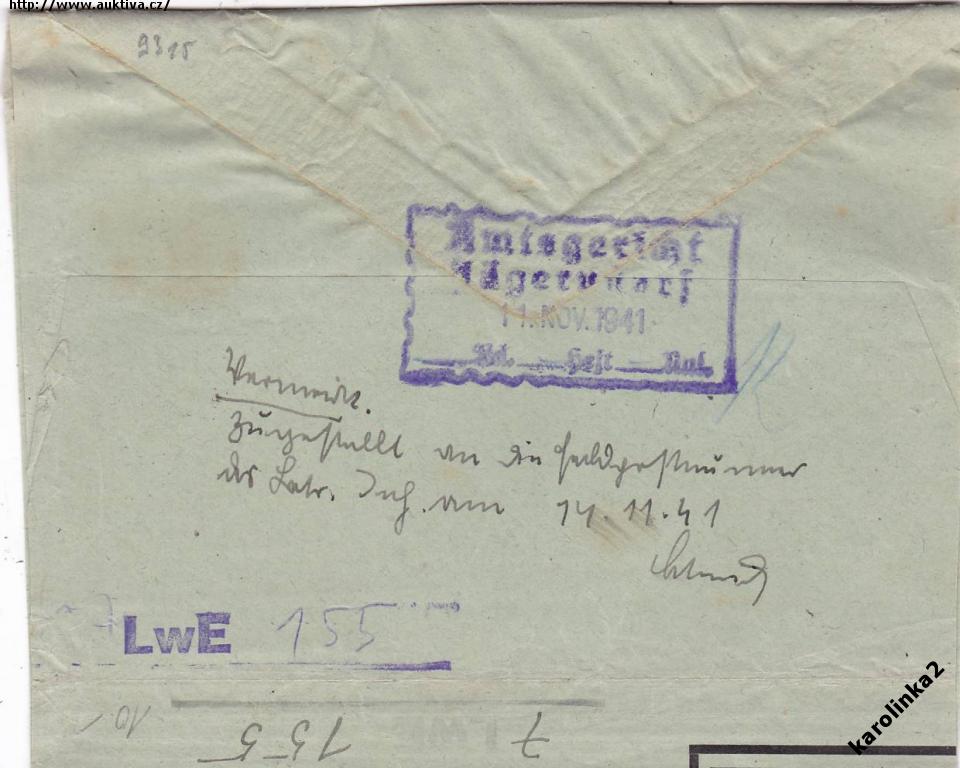 http://www.auktiva.cz/
9315
Amtsgericht
Jägerndorf
11. NOV. 1941
Bd. Heft Anl.
Vermerk.
Zugestellt an die Feldpostnummer
des Betr. Insch. am 14.11.41
LwE 155
10
155 7
karolinka2